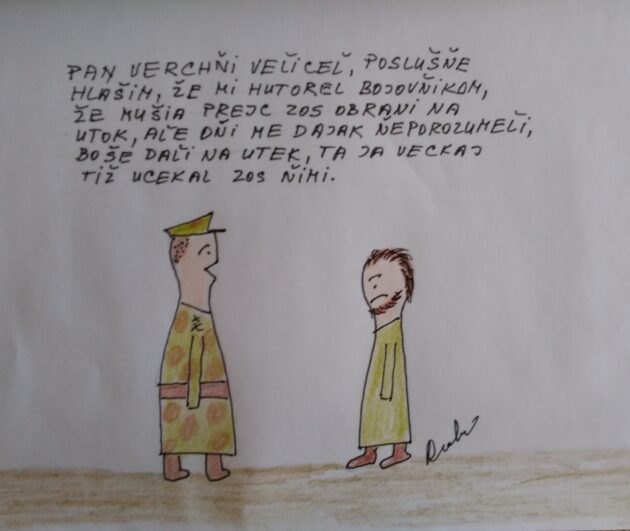 PAN VERCHŇI VEĽICEĽ, POSLUŠŇE
HLAŠIM, ŽE MI HUTOREL BOJOVŇIKOM,
ŽE MUŠIA PREJC ZOS OBRANI NA
UTOK, AĽE OŇI ME DAJAK NEPOROZUMEĽI,
BO ŠE DAĽI NA UTEK, TA JA VECKAJ
TIŽ UCEKAL ZOS ŇIMI.